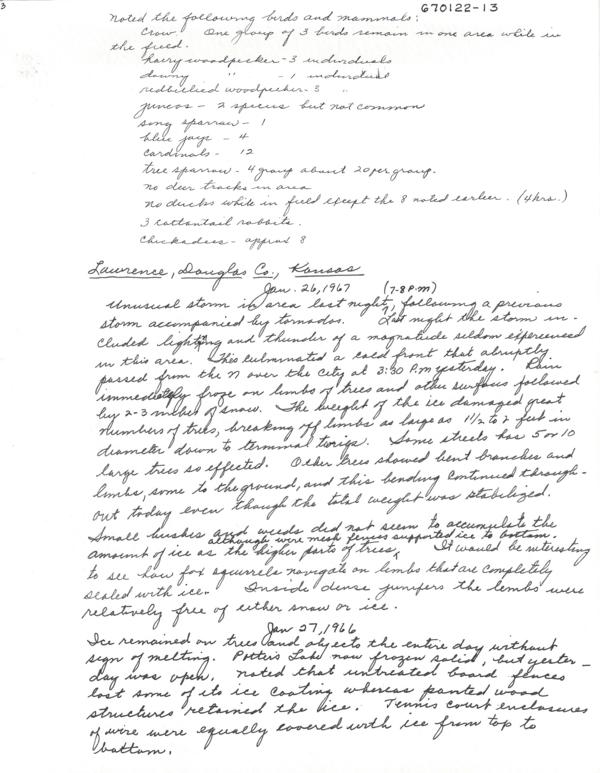 3
G70122-13
noted the following birds and mammals:
Crow. One group of 3 birds remain in one area while in
the field.
hairy woodpecker - 3 individuals
downy " - 1 individual
redbellied woodpecker - 3 "
juncos - 2 species but not common
song sparrow - 1
blue jays - 4
cardinals - 12
tree sparrow - 4 group about 20 per group.
no deer tracks in area
no ducks while in field except the 8 noted earlier. (4 hrs.)
3 cottontail rabbits.
Chickadees - approx 8
Lawrence, Douglas Co., Kansas
Jan. 26, 1967 (7-8 P.M)
Unusual storm in area last night, following a previous
storm accompanied by tornados. Last night the storm in-
cluded lightning and thunder of a magnitude seldom experienced
in this area. This culminated a cold front that abruptly
passed from the N over the City at 3:30 P.M yesterday. Rain
immediately froze on limbs of trees and other surfaces followed
by 2-3 inches of snow. The weight of the ice damaged great
numbers of trees, breaking off limbs as large as 1 1/2 to 2 feet in
diameter down to terminal twigs. Some streets has 5 or 10
large trees so effected. Other trees showed bent branches and
limbs, some to the ground, and this bending continued through-
out today even though the total weight was stabilized.
Small bushes and weeds did not seem to accumulate the
although wire mesh fences supported ice to bottom.
amount of ice as the higher parts of trees, It would be interesting
to see how fox squirrels navigate on limbs that are completely
sealed with ice. Inside dense junipers the limbs were
relatively free of either snow or ice.
Jan 27, 1966
Ice remained on trees and objects the entire day without
sign of melting. Potter's Lake now frozen solid, but yester-
day was open. noted that untreated board fences
lost some of its ice coating whereas painted wood
structures retained the ice. Tennis court enclosures
of wire were equally covered with ice from top to
bottom.